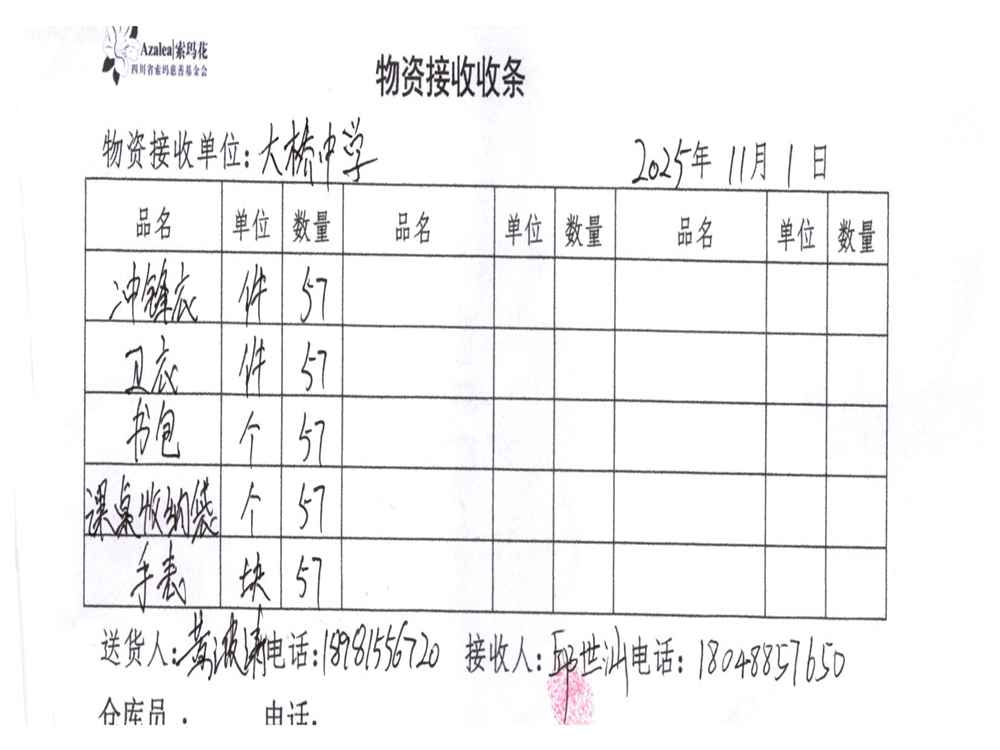 Azalea|索玛花
四川省索玛慈善基金会
物资接收收条
物资接收单位:大桥中学 2025年 11月 1日
品名 单位 数量 品名 单位 数量 品名 单位 数量
冲锋衣 件 57
卫衣 件 57
书包 个 57
课桌收纳袋 个 57
手表 块 57
送货人:黄波涛 电话:18981556720 接收人:邱世汕 电话:18048857650
仓库员: 电话: